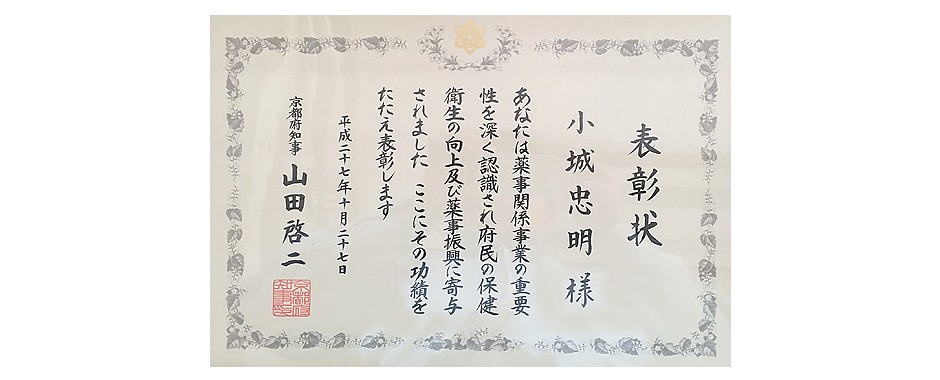 表彰状
小城忠明 様
あなたは薬事関係事業の重要
性を深く認識され府民の保健
衛生の向上及び薬事振興に寄与
されました ここにその功績を
たたえ表彰します
平成二十七年十月二十七日
京都府知事 山田啓二
京都府
知事印